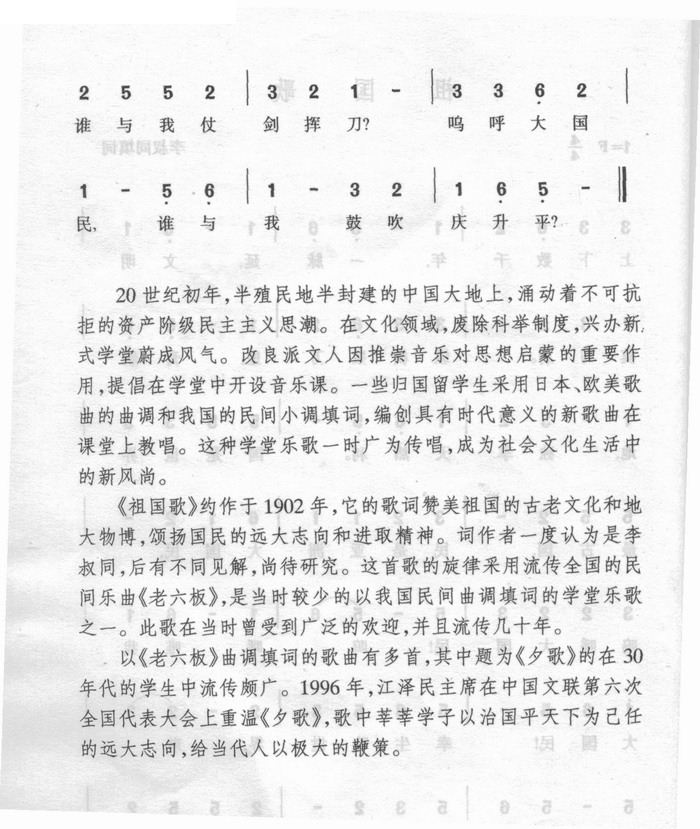 2 5 5 2 | 3 2 1 - | 3 3 6̣ 2 |
谁 与 我 仗 剑 挥 刀? 呜 呼 大 国
1 - 5̣ 6̣ | 1 - 3 2 | 1 6̣ 5̣ - ‖
民, 谁 与 我 鼓 吹 庆 升 平?
20 世纪初年,半殖民地半封建的中国大地上,涌动着不可抗
拒的资产阶级民主主义思潮。在文化领域,废除科举制度,兴办新
式学堂蔚成风气。改良派文人因推崇音乐对思想启蒙的重要作
用,提倡在学堂中开设音乐课。一些归国留学生采用日本、欧美歌
曲的曲调和我国的民间小调填词,编创具有时代意义的新歌曲在
课堂上教唱。这种学堂乐歌一时广为传唱,成为社会文化生活中
的新风尚。
《祖国歌》约作于 1902 年,它的歌词赞美祖国的古老文化和地
大物博,颂扬国民的远大志向和进取精神。词作者一度认为是李
叔同,后有不同见解,尚待研究。这首歌的旋律采用流传全国的民
间乐曲《老六板》,是当时较少的以我国民间曲调填词的学堂乐歌
之一。此歌在当时曾受到广泛的欢迎,并且流传几十年。
以《老六板》曲调填词的歌曲有多首,其中题为《夕歌》的在 30
年代的学生中流传颇广。1996 年,江泽民主席在中国文联第六次
全国代表大会上重温《夕歌》,歌中莘莘学子以治国平天下为己任
的远大志向,给当代人以极大的鞭策。